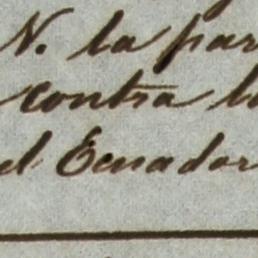 N. la par
contra l
el Ecuador